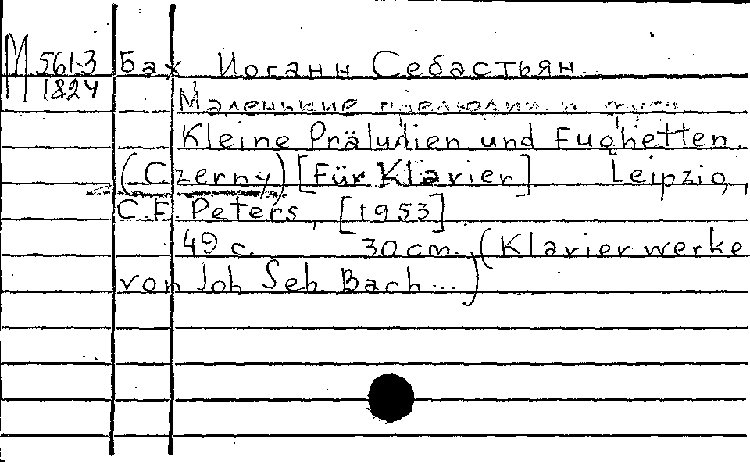 М 561-3 Бах Иоганн Себастьян
1824
Маленькие прелюдии и
Kleine Präludien und Fughetten.
(Czerny) [Für Klavier] Leipzig,
C.F. Peters, [1953]
49 с. 30 cm. (Klavierwerke
von Joh Seb Bach...)